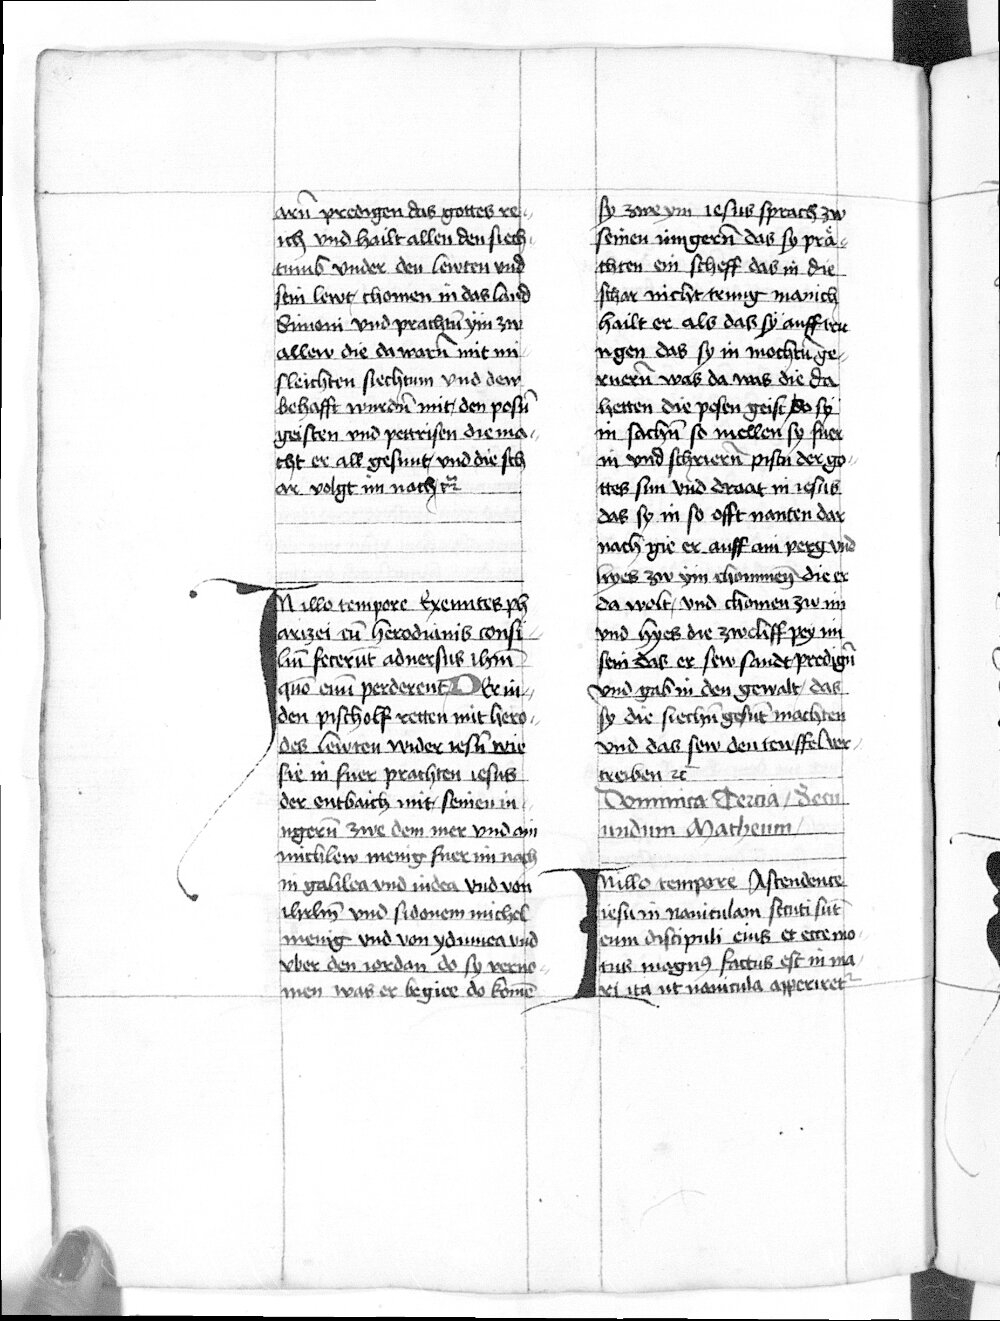 arn̄ predigen das gottes re-
ich vnd hailt allen den siech-
tumb vnder den lewten vnd
sein lewt chomen in das land
Simoni vnd prachtn̄ ym zw
allew die da warn̄ mit mi-
sleichten siechtum vnd dew
behafft wurdn̄ mit den posn̄
geisten vnd pettrisen die ma-
cht er all gesunt vnd die sch
ar volgt im nach
In illo tempore Exeuntes ph
arizei cū herodianis consi-
liū fecerūt aduersus ihm̄
quo eum perderent Er in-
den pischolff retten mit hero-
des lewten wider iesū wie
sie in fuer prachten iesus
der entbaich mit seinen in-
ngern̄ zwe dem mer vnd ain
michlew menig fuer im nach
in galilea vnd iudea vnd von
ihrlm̄ vnd sidonem michel
menig vnd von ydumea vnd
vber den iordan do sy verno-
men was er begiee do komē
sy zwe ym iesus sprach zw
seinen iungern̄ das sy prä-
chten ein scheff das in die
schar nicht trung manich
hailt er als das sy auff tru
ngen das sy in mochtn̄ ge-
ruern̄ was da was die da
hetten die posen geist do sy
in sachn̄ so viellen sy fuer
in vnd schriern̄ pistu der go-
ttes sun vnd draat in iesus
das sy in so offt nanten dar
nach gie er auff ain perg vnd
hyes zw ym chommen̄ die er
da wolt vnd chomen zw im
vnd hyes die zwcliff pey im
sein das er sew sandt predign̄
vnd gab in den gewalt das
sy die siechn̄ gesūt machten
vnd das sew den tewffel ver-
treiben ⁊c̄
Dominica Tercia / Secu
undum Matheum /
In illo tempore Ascendente
iesu in nauiculam secuti sūt
eum discipuli eius et ecce mo-
tus magnꝰ factus est in ma-
ri ita ut nauicula apperiret᷑